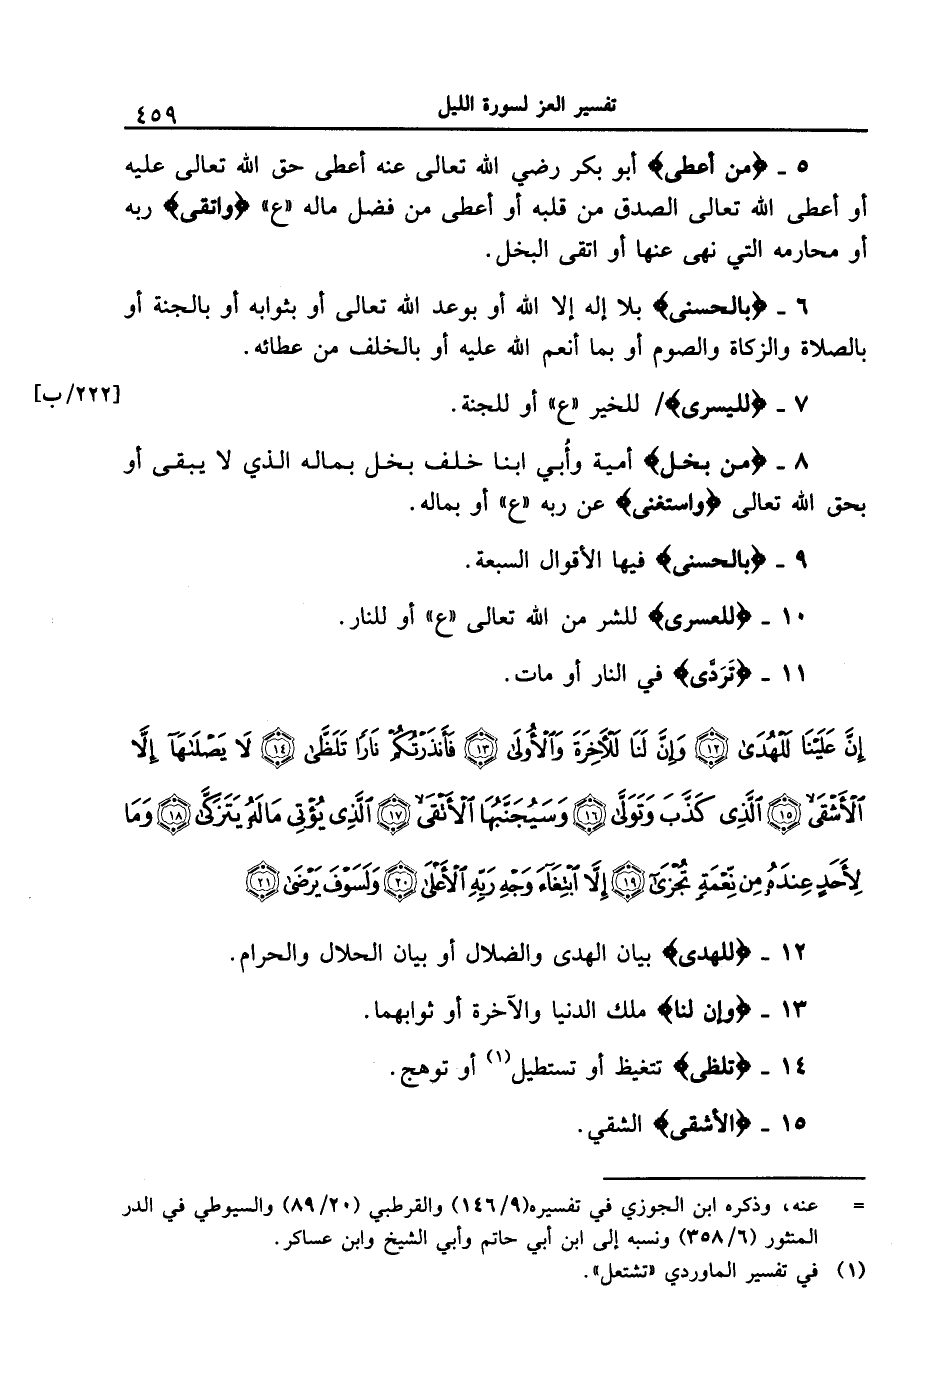 تفسير العز لسورة الليل
٤٥٩
٥ ـ ﴿من أعطى﴾ أبو بكر رضي الله تعالى عنه أعطى حق الله تعالى عليه
أو أعطى الله تعالى الصدق من قلبه أو أعطى من فضل ماله «ع» ﴿واتقى﴾ ربه
أو محارمه التي نهى عنها أو اتقى البخل.
٦ ـ ﴿بالحسنى﴾ بلا إله إلا الله أو بوعد الله تعالى أو بثوابه أو بالجنة أو
بالصلاة والزكاة والصوم أو بما أنعم الله عليه أو بالخلف من عطائه.
٧ ـ ﴿لليسرى﴾/ للخير «ع» أو للجنة.
[٢٢٢/ب]
٨ ـ ﴿من بخل﴾ أمية وأُبي ابنا خلف بخل بماله الذي لا يبقى أو
بحق الله تعالى ﴿واستغنى﴾ عن ربه «ع» أو بماله.
٩ ـ ﴿بالحسنى﴾ فيها الأقوال السبعة.
١٠ ـ ﴿للعسرى﴾ للشر من الله تعالى «ع» أو للنار.
١١ ـ ﴿تَرَدَّى﴾ في النار أو مات.
إِنَّ عَلَيْنَا لَلْهُدَىٰ ﴿١٢﴾ وَإِنَّ لَنَا لَلْآخِرَةَ وَٱلْأُولَىٰ ﴿١٣﴾ فَأَنذَرْتُكُمْ نَارًا تَلَظَّىٰ ﴿١٤﴾ لَا يَصْلَىٰهَآ إِلَّا
ٱلْأَشْقَى ﴿١٥﴾ ٱلَّذِى كَذَّبَ وَتَوَلَّىٰ ﴿١٦﴾ وَسَيُجَنَّبُهَا ٱلْأَتْقَى ﴿١٧﴾ ٱلَّذِى يُؤْتِى مَالَهُۥ يَتَزَكَّىٰ ﴿١٨﴾ وَمَا
لِأَحَدٍ عِندَهُۥ مِن نِّعْمَةٍ تُجْزَىٰٓ ﴿١٩﴾ إِلَّا ٱبْتِغَآءَ وَجْهِ رَبِّهِ ٱلْأَعْلَىٰ ﴿٢٠﴾ وَلَسَوْفَ يَرْضَىٰ ﴿٢١﴾
١٢ ـ ﴿للهدى﴾ بيان الهدى والضلال أو بيان الحلال والحرام.
١٣ ـ ﴿وإن لنا﴾ ملك الدنيا والآخرة أو ثوابهما.
١٤ ـ ﴿تلظى﴾ تتغيظ أو تستطيل(١) أو توهج.
١٥ ـ ﴿الأشقى﴾ الشقي.
= عنه، وذكره ابن الجوزي في تفسيره(١٤٦/٩) والقرطبي (٨٩/٢٠) والسيوطي في الدر
المنثور (٣٥٨/٦) ونسبه إلى ابن أبي حاتم وأبي الشيخ وابن عساكر.
(١) في تفسير الماوردي «تشتعل».